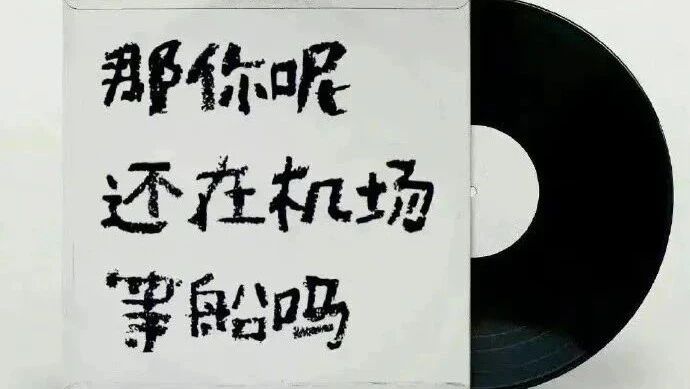 那你呢
还在机场
等船吗